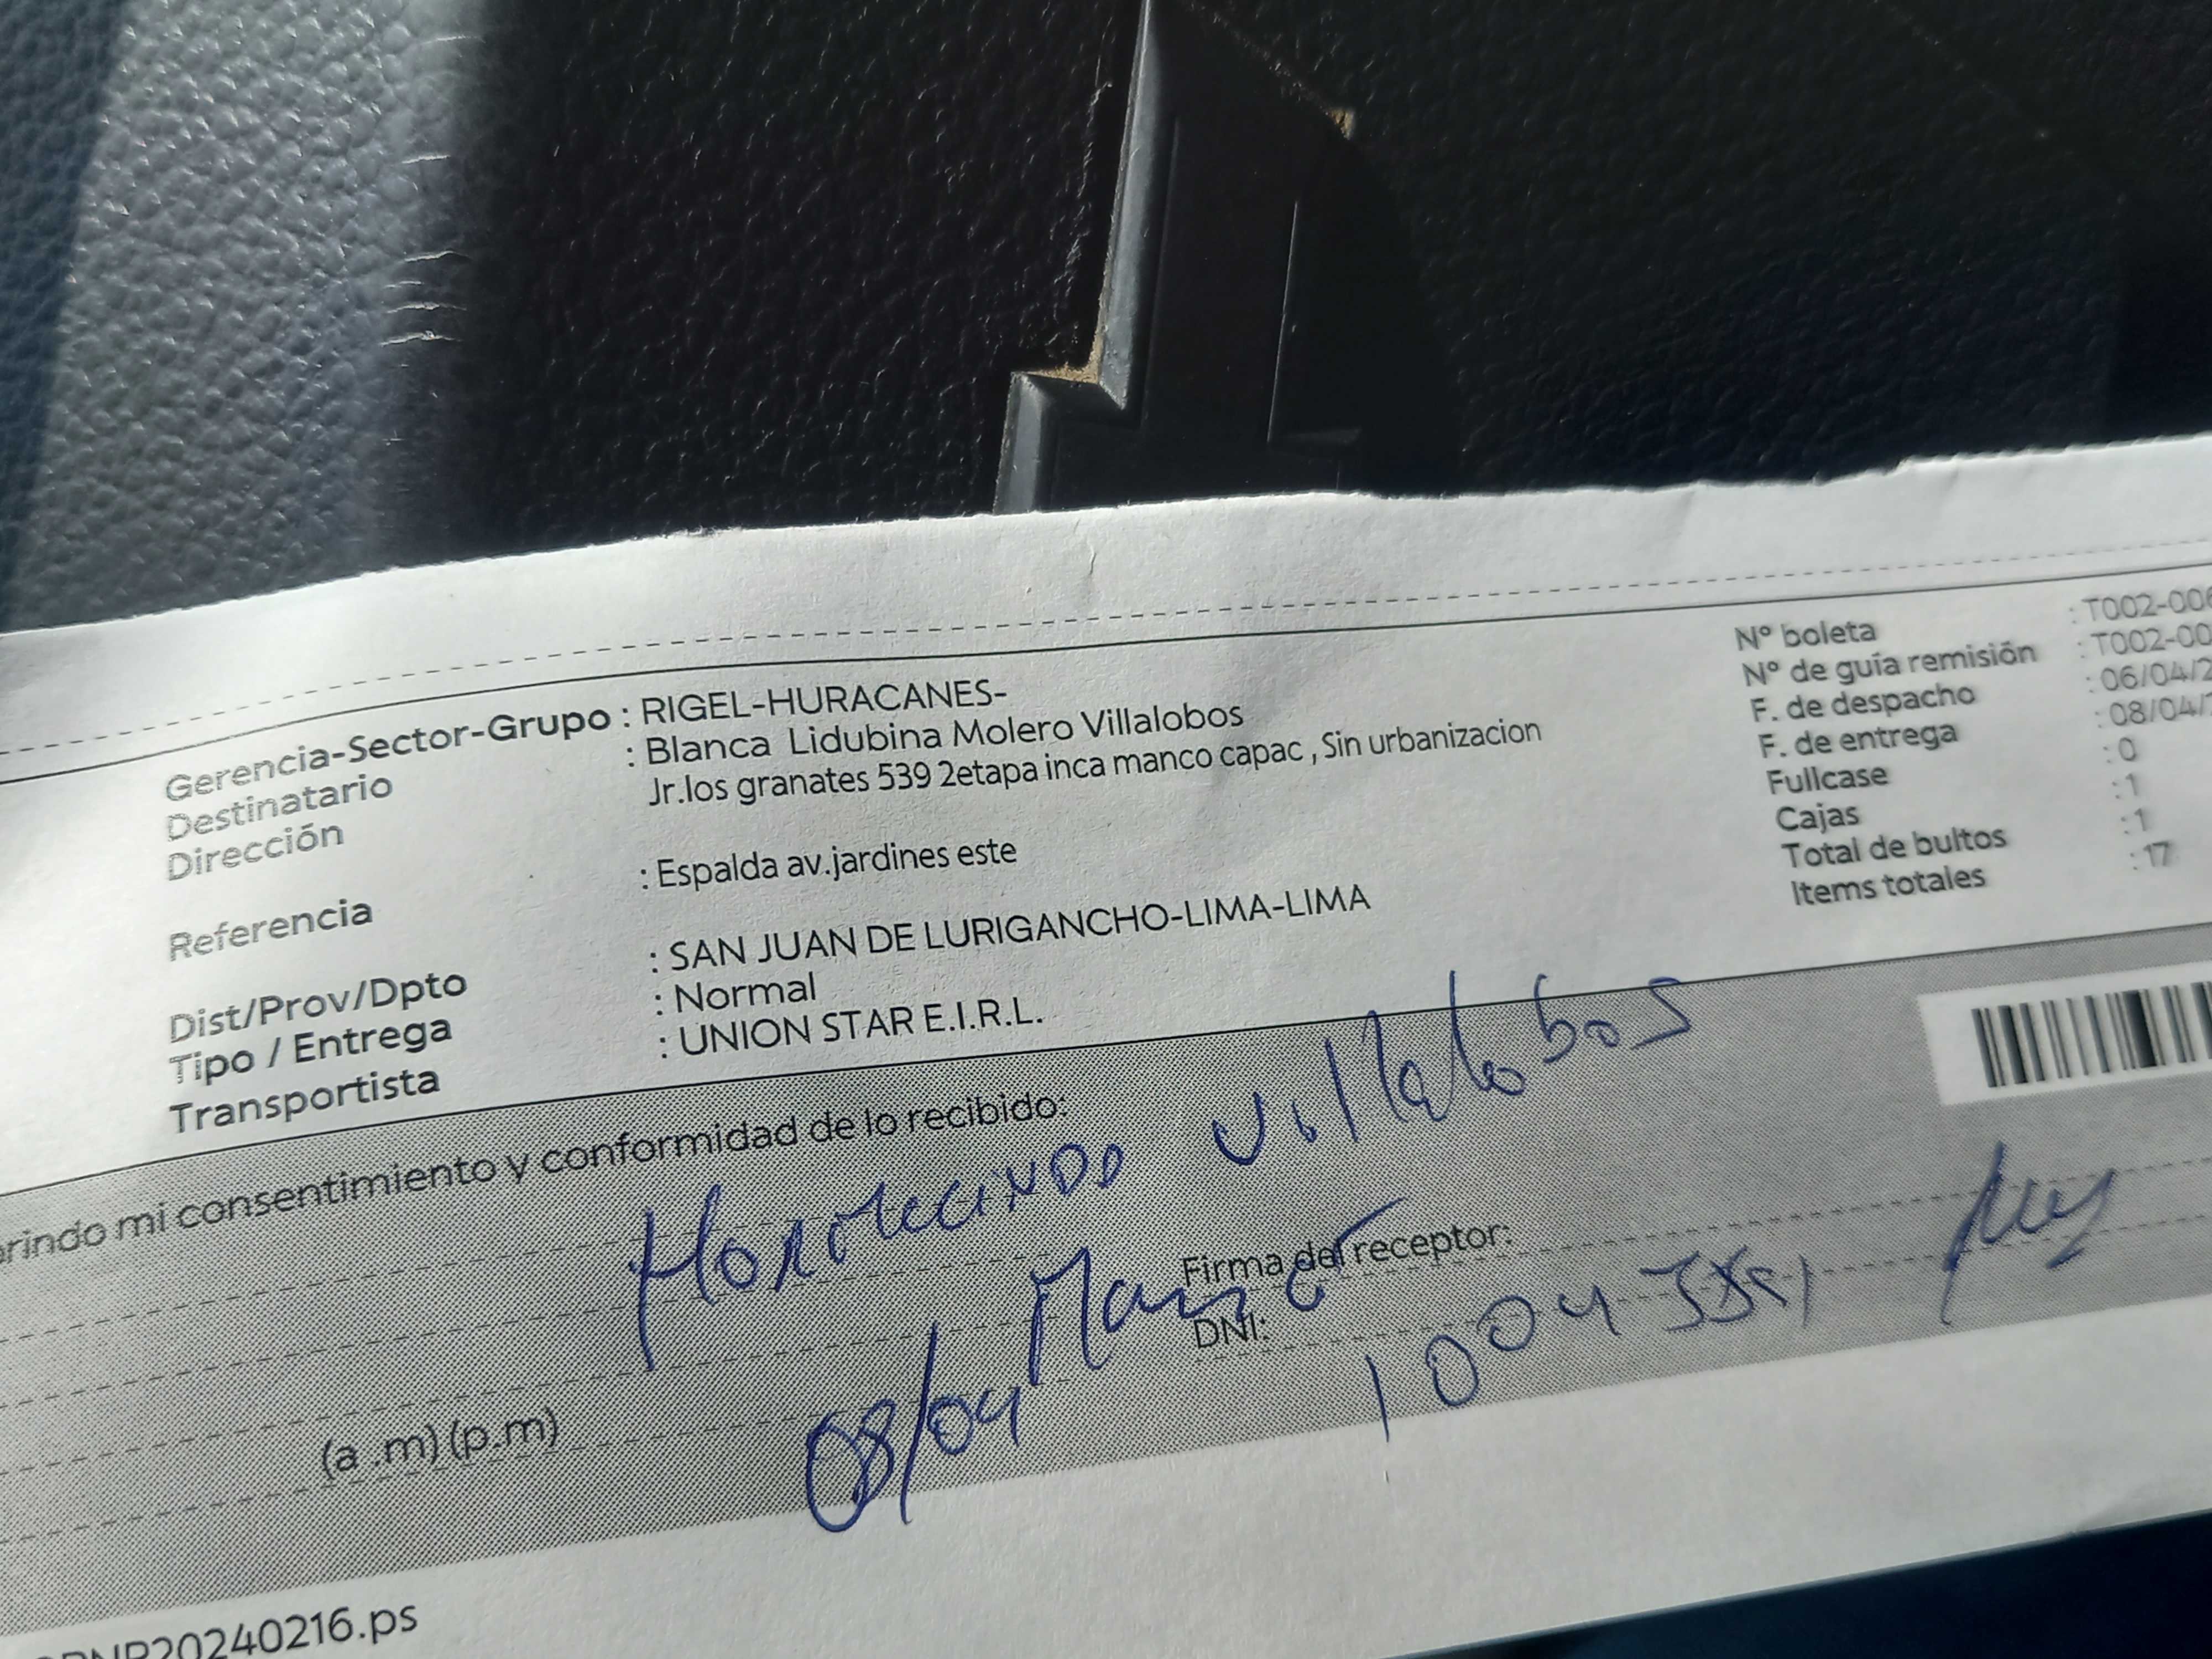 Gerencia-Sector-Grupo : RIGEL-HURACANES-
Destinatario : Blanca Lidubina Molero Villalobos
Dirección Jr.los granates 539 2etapa inca manco capac , Sin urbanizacion
Referencia : Espalda av.jardines este
Dist/Prov/Dpto : SAN JUAN DE LURIGANCHO-LIMA-LIMA
Tipo / Entrega : Normal
Transportista : UNION STAR E.I.R.L.
N° boleta : T002-006
N° de guía remisión : T002-00
F. de despacho : 06/04/2
F. de entrega : 08/04/
Fullcase : 0
Cajas : 1
Total de bultos : 1
Items totales : 17
rindo mi consentimiento y conformidad de lo recibido:
Villalobos
Firma del receptor:
DNI:
(a .m) (p.m)
08/04
20240216.ps